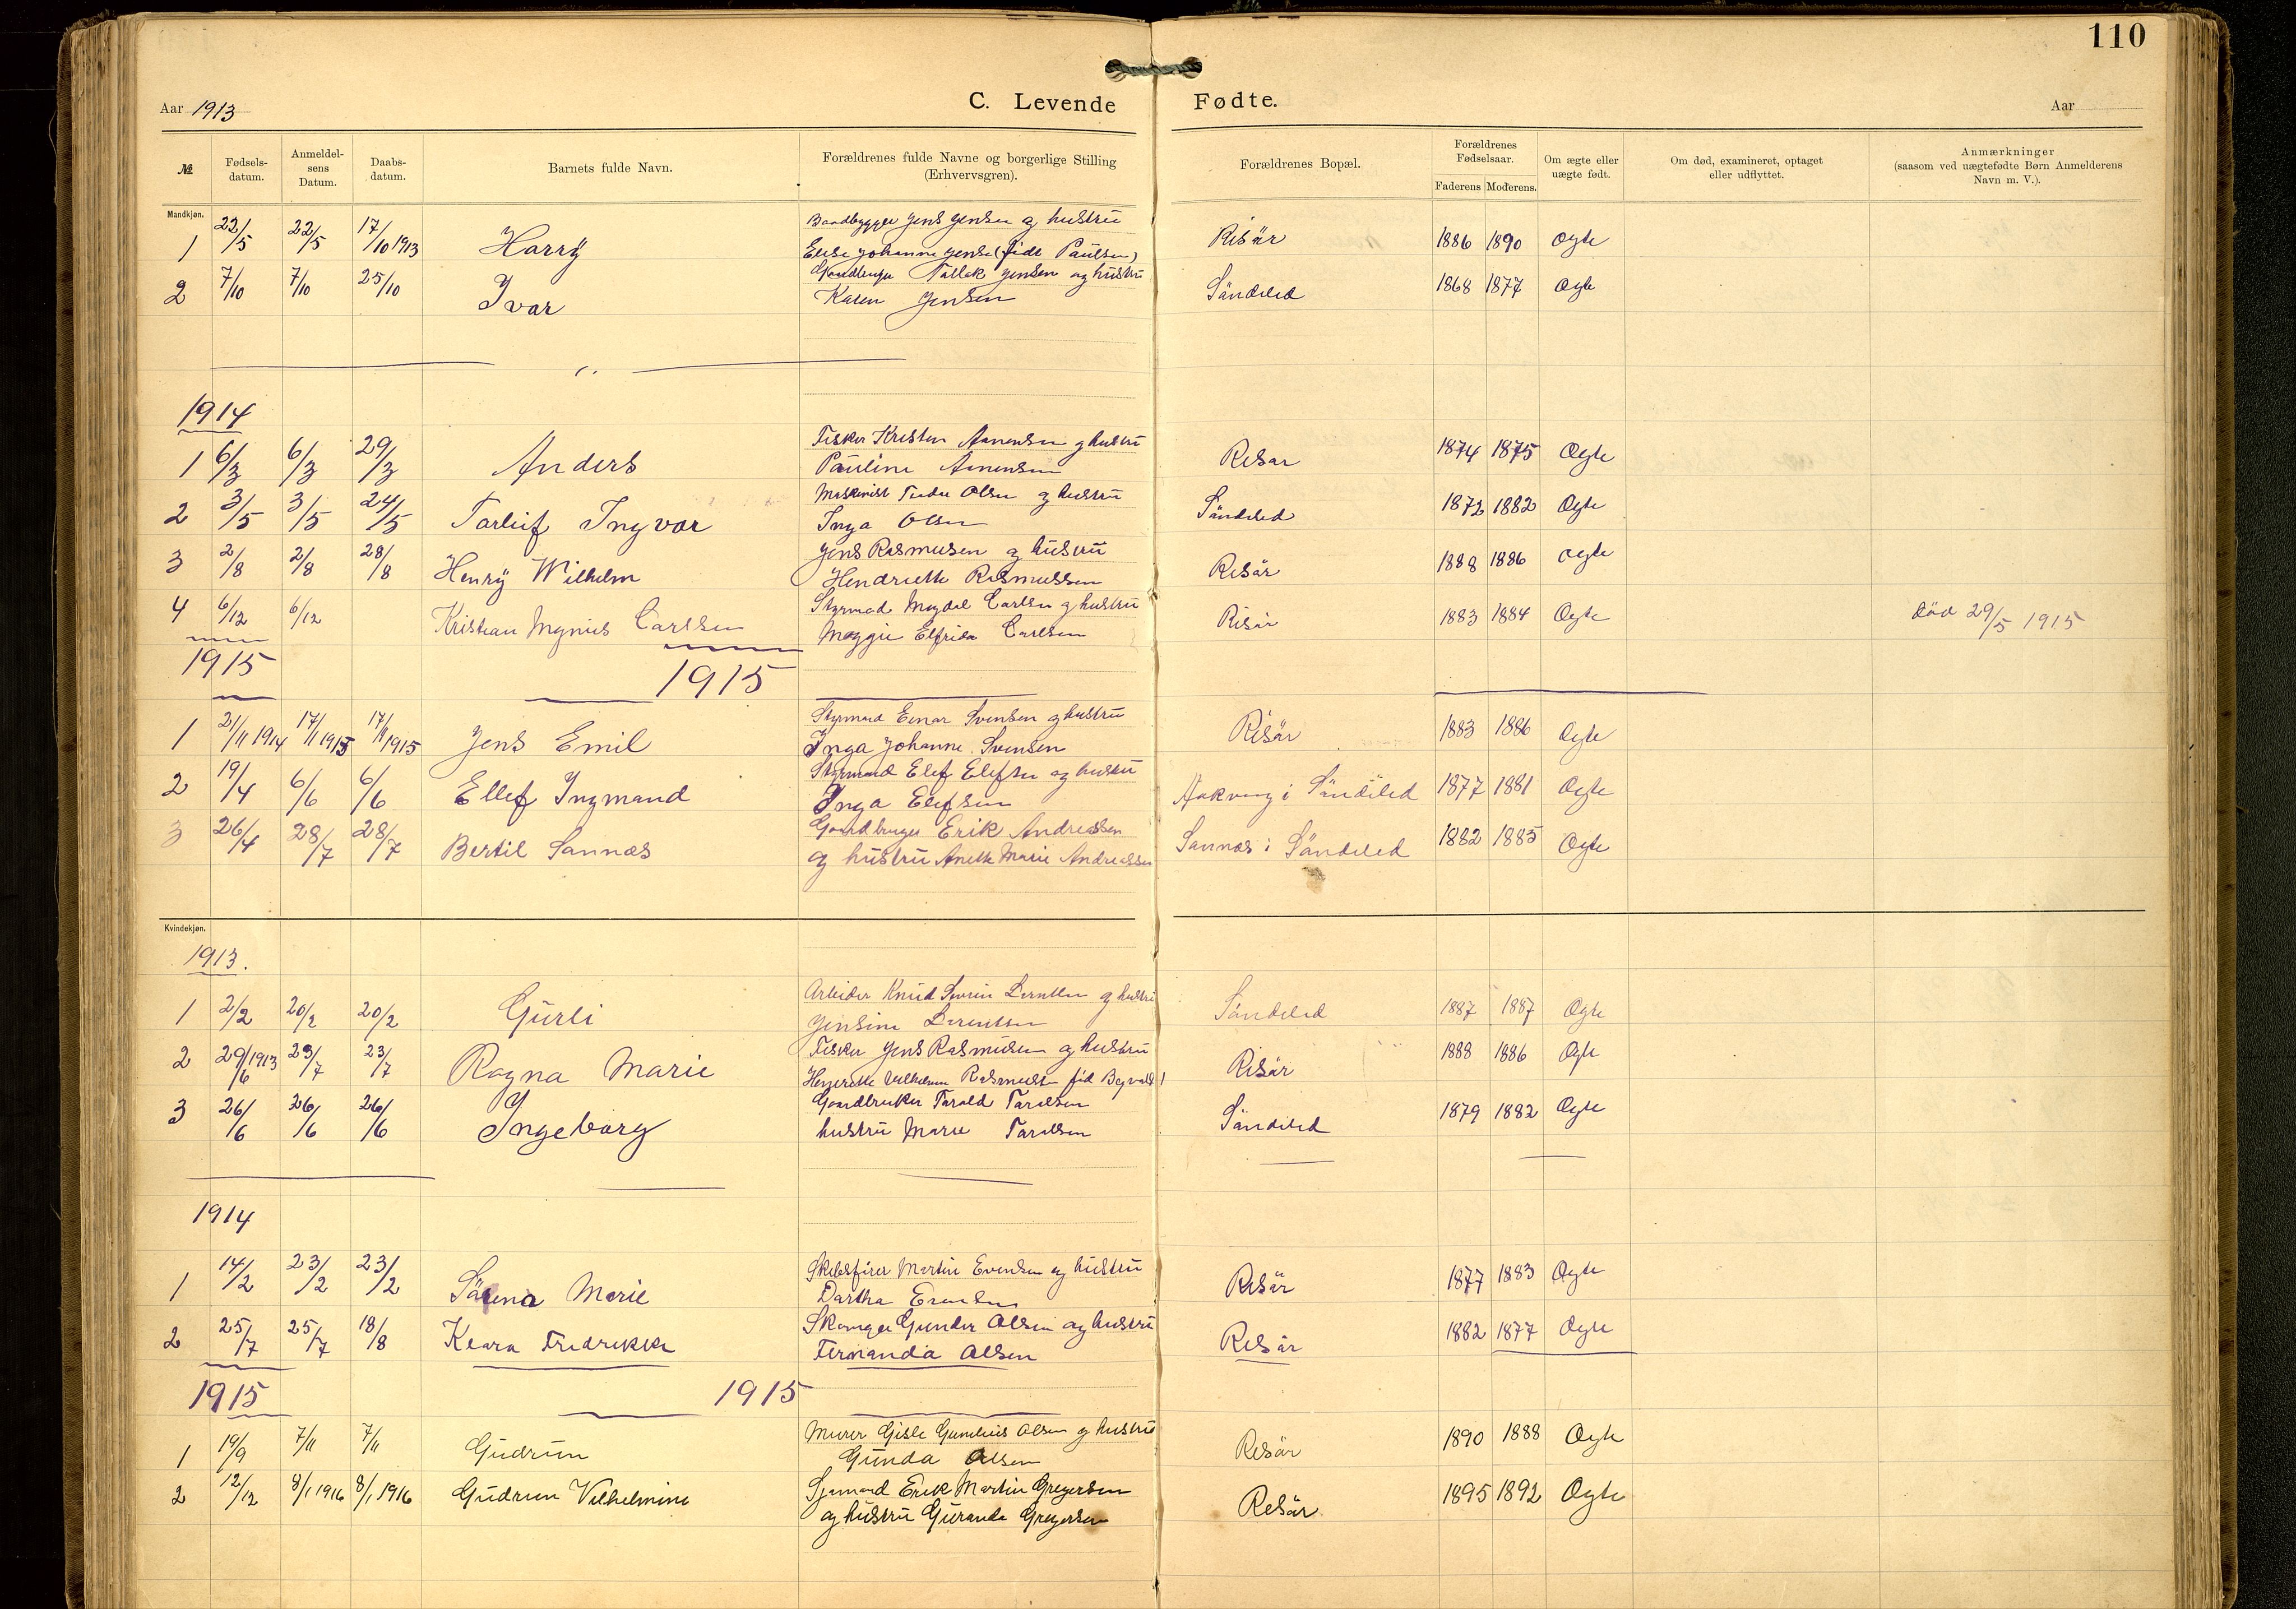 110
Aar 1913 C. Levende Fødte. Aar
№ Fødsels-datum. Anmeldel-sens Datum. Daabs-datum. Barnets fulde Navn. Forældrenes fulde Navne og borgerlige Stilling (Erhvervsgren). Forældrenes Bopæl. Forældrenes Fødselsaar. Faderens Moderens. Om ægte eller uægte født. Om død, examineret, optaget eller udflyttet. Anmærkninger (saasom ved uægtefødte Børn Anmelderens Navn m. V.).
Mandkjøn.
Baadbygger Jens Jensen og hustru
1 22/5 22/5 17/10 1913 Harrÿ Elise Johanne Jense (född Paulsen) Risär 1886 1890 Ogte
Gaardbruger Tallak Jensen og hustru
2 7/10 7/10 25/10 Ivar Karen Jensen Sändeled 1868 1877 Ogte
1914
Fisker Kristen Aanensen og hustru
1 6/3 6/3 29/3 Anders Pauline Aanensen Risar 1874 1875 Ogte
Maskinist Olsen og hustru
2 3/5 3/5 24/5 Torleif Ingvar Inga Olsen Sändeled 1872 1882 Ogte
Jens Rasmusen og hustru
3 2/8 2/8 28/8 Henrÿ Wilhelm Hendriette Rasmussen Risär 1888 1886 Ogte
Styrmad Magdal Carlsen og hustru
4 6/12 6/12 Kristian Magnus Carlsen Maggie Elfrida Carlsen Risär 1883 1884 Ogte död 29/5 1915
1915 1915
Styrmand Einar Svensen og hustru
1 21/11 1914 17/1 1915 17/1 1915 Jens Emil Inga Johanne Svensen Risär 1883 1886 Ogte
Styrmand Elef Elefsen og hustru
2 19/4 6/6 6/6 Ellef Ingmand Inga Elefsen Aakvaag i Sändeled 1877 1881 Ogte
Gaardbruger Erik Andreassen
3 26/4 28/7 28/7 Bertil Sannæs og hustru Anette Marie Andreassen Sannæs i Sändeled 1882 1885 Ogte
Kvindekjøn.
1913.
Arbeider Knud Severin Berntsen og hustru
1 2/2 20/2 20/2 Gurli Jensine Sändeled 1887 1887 Ogte
Fisker Jens Rasmusen og hustru
2 29/6 1913 23/7 23/7 Ragna Marie Rasmusen föd Risär 1888 1886 Ogte
Gaardbruker Tarald Taralsen
3 26/6 26/6 26/6 Ingeborg hustru Marie Taralsen Sändeled 1879 1882 Ogte
1914
Skibsförer Martin Evensen og hustru
1 14/2 23/2 23/2 Särena Marie Dartha Evensen Risär 1877 1883 Ogte
Gunder Olsen og hustru
2 25/7 25/7 18/8 Klara Fredrikke Fernanda Olsen Risär 1882 1877 Ogte
1915 1915
Murer Gisle Gunelius Olsen og hustru
1 19/9 7/11 7/11 Gudrun Gunda Olsen Risär 1890 1888 Ogte
Sjømand Erik Martin Gregersen
2 12/12 8/1 1916 8/1 1916 Gudrun Vilhelmine og hustru Guranda Gregersen Risär 1895 1892 Ogte